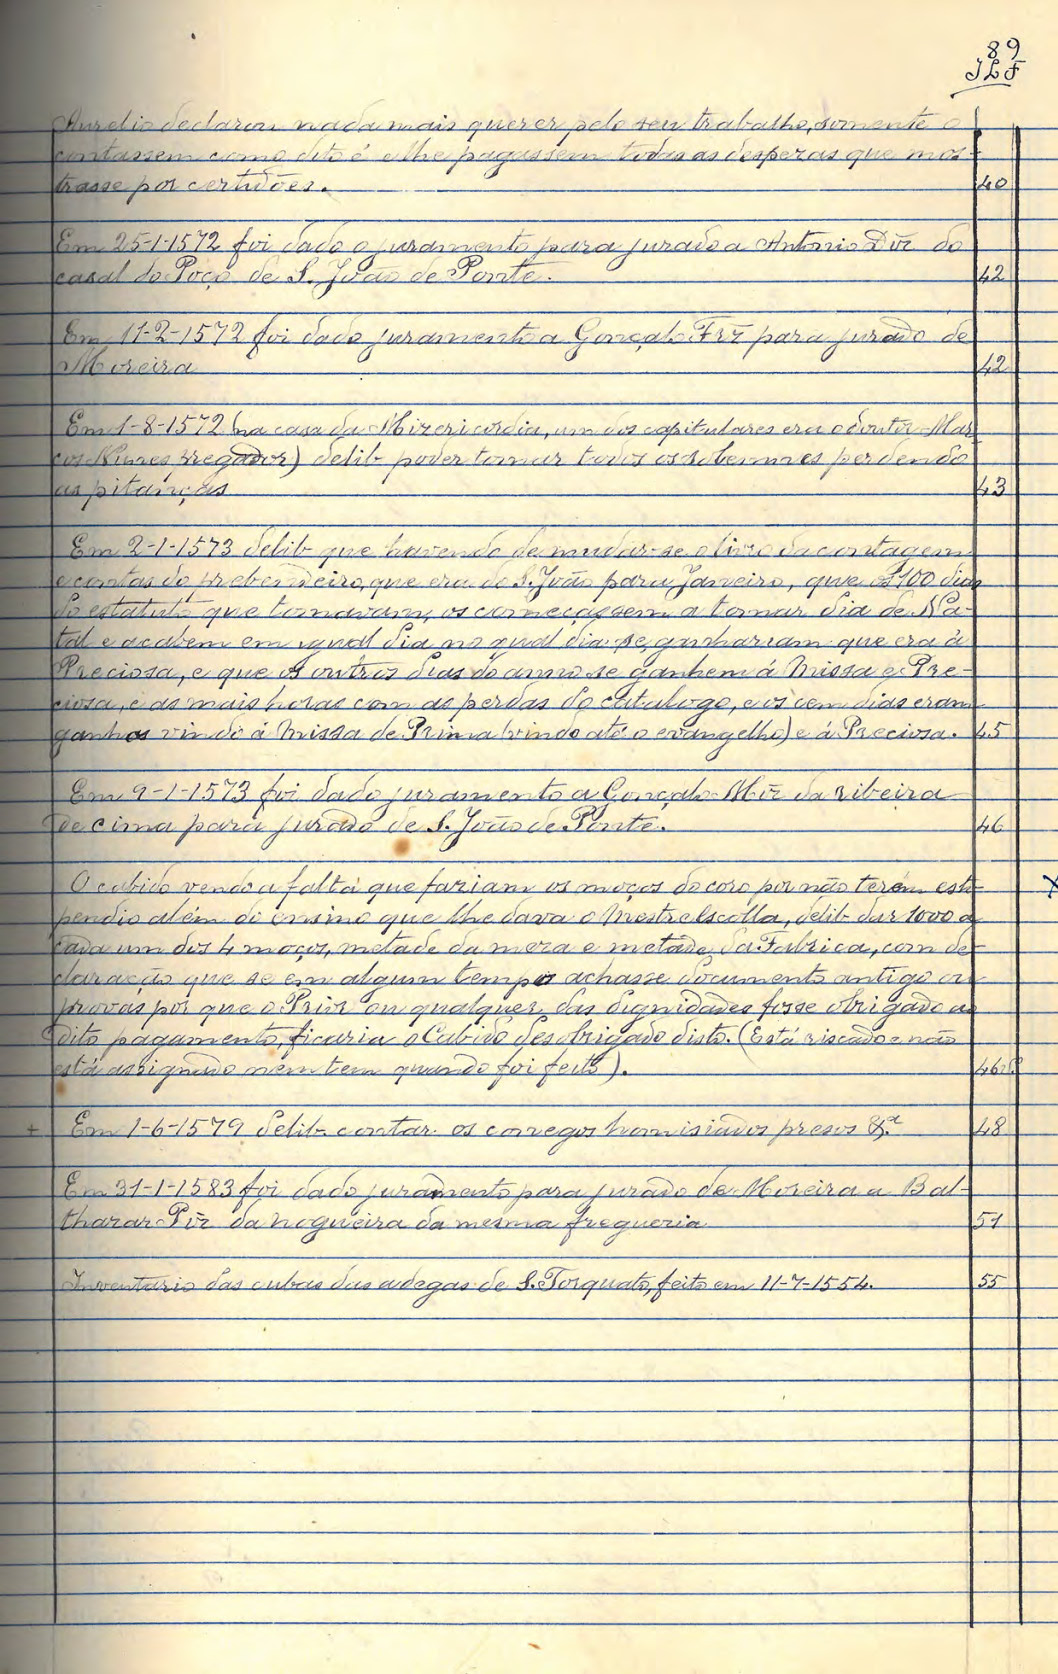 89
JLF
Aurelio declarou nada mais querer pelo seu trabalho, somente o
contassem como dito é e lhe pagassem todas as despezas que mos-
trasse por certidões. 40
Em 25-1-1572 foi dado o juramento para jurado a Antonio Dĩz do
casal do Poço de S. João de Ponte. 42
Em 11-2-1572 foi dado juramento a Gonçalo Frz para jurado de
Moreira 42
Em 1-8-1572 (na casa da Mizericordia, um dos capitulares era o doutor Mar
cos Nunes pregador) delib poder tomar todos os solemnes perdendo
as pitanças 43
Em 2-1-1573 delib que havendo de mudar-se o livro da contagem
e contas do prebendeiro, que era de S. João para Janeiro, que os 100 dias
do estatuto que tomavam, os começassem a tomar dia de Na-
tal e acabem em igual dia, no qual dia se ganhariam que era á
Preciosa, e que os outros dias do anno se ganhem á Missa e Pre-
ciosa, e as mais horas com as perdas do catalogo, e os cem dias eram
ganhos vindo á Missa de Prima (vindo até o evangelho) e á Preciosa. 45
Em 9-1-1573 foi dado juramento a Gonçalo Mĩz da ribeira
de cima para jurado de S. João de Ponte. 46
O cabido vendo a falta que faziam os moços do coro por não terem esti-
pendio além do ensino que lhe dava o Mestre Escolla, delib dar 1000 a
cada um dos 4 moços, metade da meza e metade da Fabrica, com de-
claração que se em algum tempo achasse documento antigo ou
provas por que o Prior ou qualquer das dignidades fosse obrigado ao
dito pagamento, ficaria o Cabido desobrigado disto. (Está riscado e não
está assignado nem tem quando foi feito). 46 v.
+ Em 1-6-1579 delib contar os conegos homisiados presos &.ª 48
Em 31-1-1583 foi dado juramento para jurado de Moreira a Bal-
thazar Pĩz da nogueira da mesma freguezia 51
Inventario das cubas das adegas de S. Torquato, feito em 11-7-1554. 55